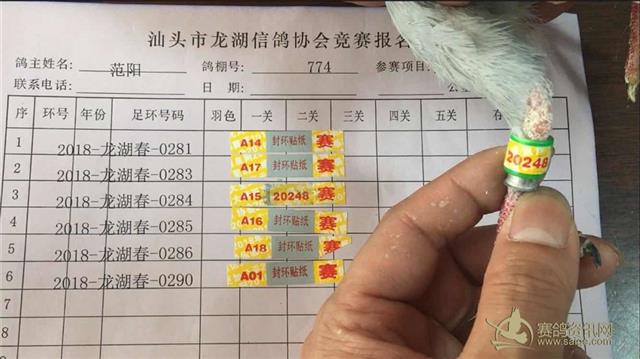 汕头市龙湖信鸽协会竞赛报名
鸽主姓名: 范阳 鸽棚号: 774 参赛项目:
联系电话: 日期:
序 环号 年份 足环号码 羽色 一关 二关 三关 四关 五关
1 2018-龙湖春-0281 A14 封环贴纸 赛
2 2018-龙湖春-0283 A17 封环贴纸 赛
3 2018-龙湖春-0284 A15 20248 赛
4 2018-龙湖春-0285 A16 封环贴纸 赛
5 2018-龙湖春-0286 A18 封环贴纸 赛
6 2018-龙湖春-0290 A01 封环贴纸 赛
7
8
9
20248
赛鸽资讯网
www.saige.com